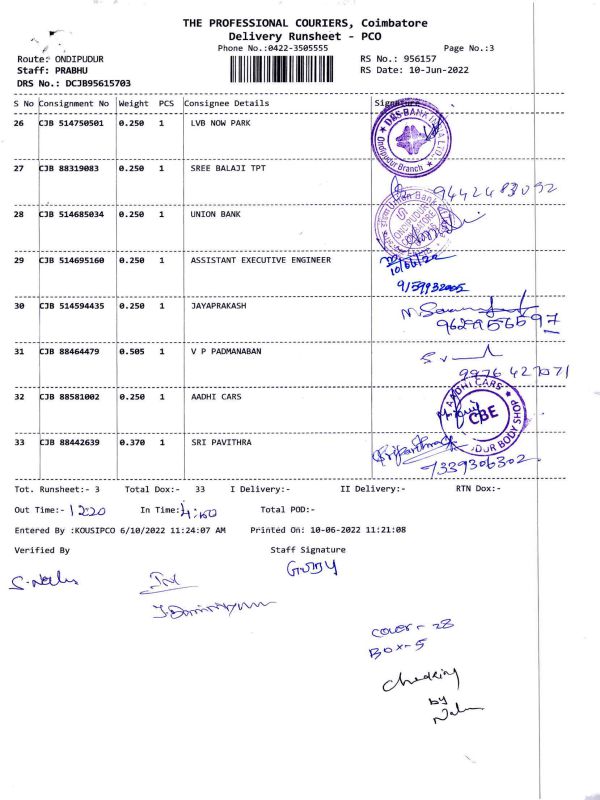 THE PROFESSIONAL COURIERS, Coimbatore
Delivery Runsheet - PCO
Phone No.:0422-3505555 Page No.:3
Route: ONDIPUDUR RS No.: 956157
Staff: PRABHU RS Date: 10-Jun-2022
DRS No.: DCJB95615703
S No Consignment No Weight PCS Consignee Details Signature
26 CJB 514750501 0.250 1 LVB NOW PARK
DBS BANK INDIA LTD.
Ondipudur Branch
27 CJB 88319083 0.250 1 SREE BALAJI TPT
28 CJB 514685034 0.250 1 UNION BANK
Union Bank
ONDIPUDUR
COIMBATORE
29 CJB 514695160 0.250 1 ASSISTANT EXECUTIVE ENGINEER
10/06/22
9159932005
30 CJB 514594435 0.250 1 JAYAPRAKASH
9629956597
31 CJB 88464479 0.505 1 V P PADMANABAN
9976427071
32 CJB 88581002 0.250 1 AADHI CARS
AADHI CARS
CBE
BODY SHOP
33 CJB 88442639 0.370 1 SRI PAVITHRA
7339306302
Tot. Runsheet:- 3 Total Dox:- 33 I Delivery:- II Delivery:- RTN Dox:-
Out Time:- 1220 In Time: 4:50 Total POD:-
Entered By :KOUSIPCO 6/10/2022 11:24:07 AM Printed On: 10-06-2022 11:21:08
Verified By Staff Signature
cover - 28
Box - 5
Checking
by